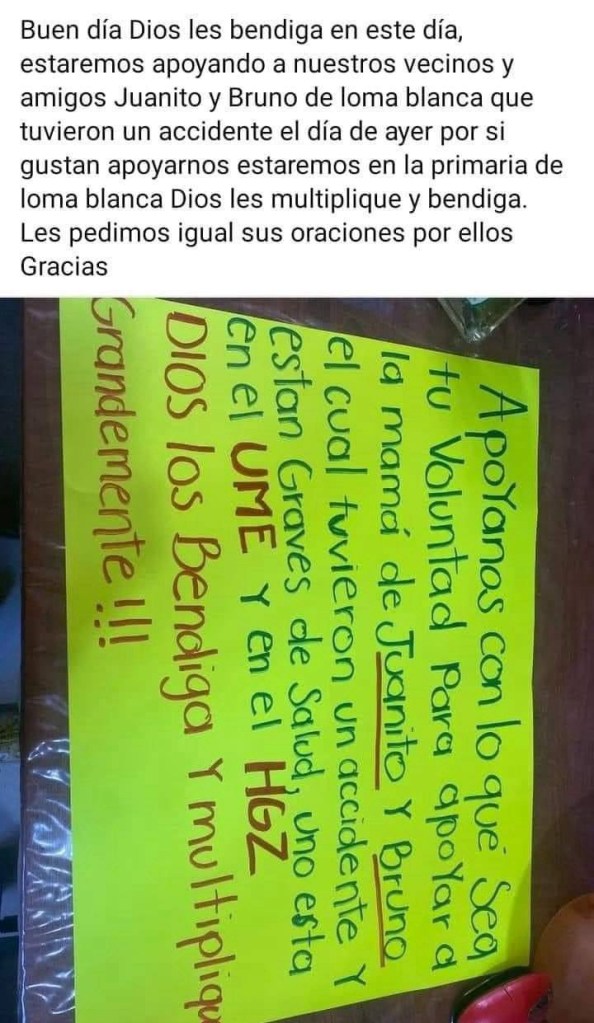 Buen día Dios les bendiga en este día,
estaremos apoyando a nuestros vecinos y
amigos Juanito y Bruno de loma blanca que
tuvieron un accidente el día de ayer por si
gustan apoyarnos estaremos en la primaria de
loma blanca Dios les multiplique y bendiga.
Les pedimos igual sus oraciones por ellos
Gracias
Apoyanos con lo que sea
tu Voluntad para apoyar a
la mamá de Juanito y Bruno
el cual tuvieron un accidente y
estan Graves de Salud, uno esta
en el UME y en el HGZ
DIOS los Bendiga y multiplique
Grandemente!!!